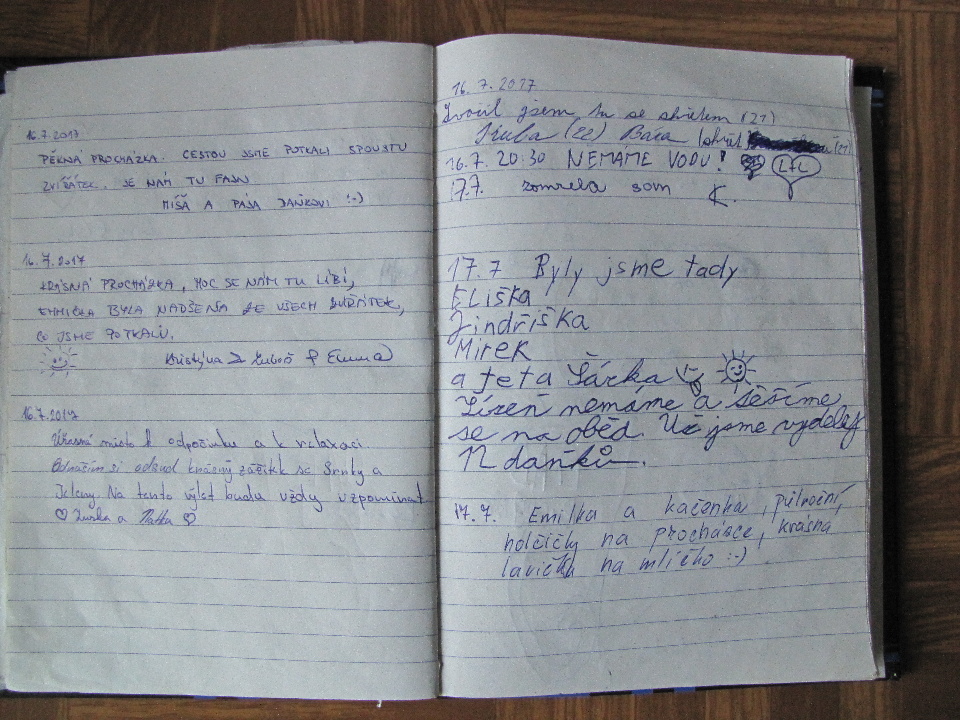 16.7.2017
PĚKNÁ PROCHÁZKA. CESTOU JSME POTKALI SPOUSTU
ZVÍŘÁTEK. JE NÁM TU FAJN
MÍŠA A PAJA DAŇKOVI :-)
16.7.2017
KRÁSNÁ PROCHÁZKA, MOC SE NÁM TU LÍBÍ,
EMMIČKA BYLA NADŠENÁ ZE VŠECH ZVÍŘÁTEK,
CO JSME POTKALI.
Kristýna Luboš Emma
16.7.2017
Úžasné místo k odpočinku a k relaxaci.
Odnáším si odsud krásný zážitek se Srnky a
Jeleny. Na tento výlet budu vždy vzpomínat
Zuzka a Maťka
16.7.2017
jsem tu se skřetem (21)
(22) Bára
16.7. 20:30 NEMÁME VODU! L+L
17.7. zomrela som K.
17.7 Byly jsme tady
Eliška
Jindřiška
Mirek
a teta Šárka
Žízeň nemáme a těšíme
se na oběd. Už jsme vyděleli
12 daňků.
17.7. Emilka a kačenka, půlroční,
holčičky na procházce, krásná
lavička na mlíčko :-)